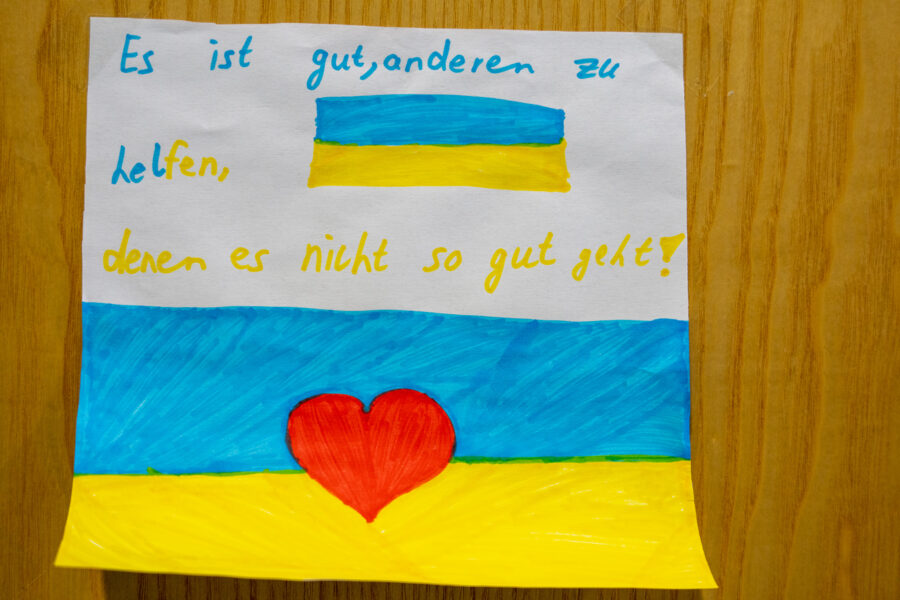 Es ist gut, anderen zu
helfen,
denen es nicht so gut geht!